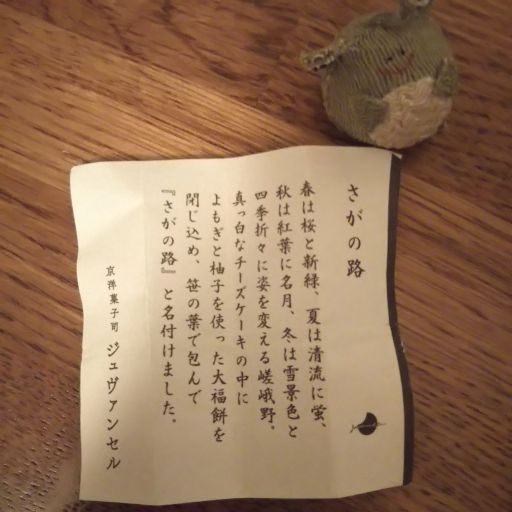 さがの路
春は桜と新緑、夏は清流に蛍、
秋は紅葉に名月、冬は雪景色と
四季折々に姿を変える嵯峨野。
真っ白なチーズケーキの中に
よもぎと柚子を使った大福餅を
閉じ込め、笹の葉で包んで
『さがの路』と名付けました。
京洋菓子司 ジュヴァンセル